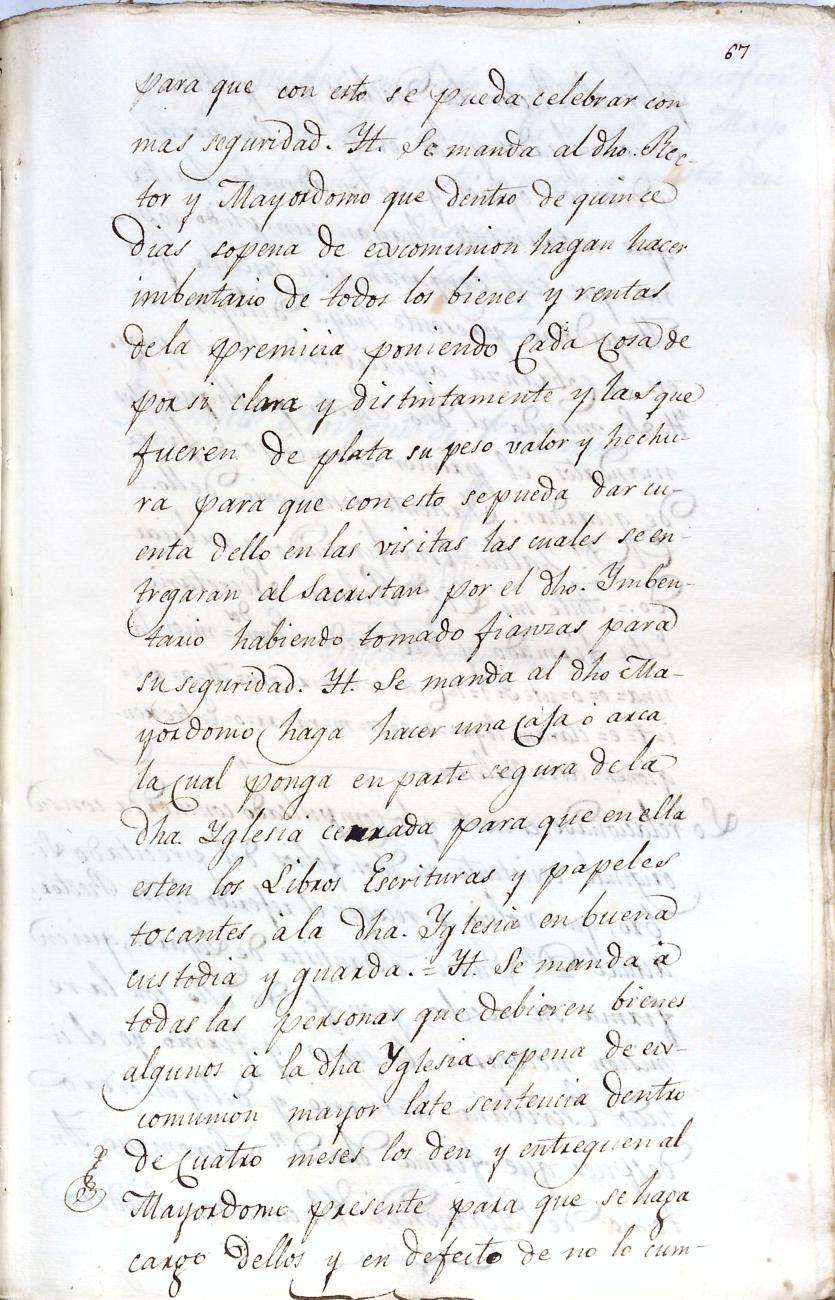 67
para que con esto se pueda celebrar con
mas seguridad. Yt. Se manda al dho. Rec-
tor y Mayordomo que dentro de quince
dias sopena de excomunion hagan hacer
imbentario de todos los bienes y rentas
dela premicia poniendo Cada Cosa de
por si clara y distintamente y las que
fueren de plata su peso valor y hechu-
ra para que con esto sepueda dar cu-
enta dello en las visitas las cuales se en-
tregaran al Sacristan por el dho. Ymben-
tario habiendo tomado fianzas para
su seguridad. Yt. Se manda al dho Ma-
yordomo haga hacer una Caja ò arca
la Cual ponga en parte segura dela
dha. Yglesia cerrada para que en ella
esten los Libros Escrituras y papeles
tocantes à la dha. Yglesia en buena
custodia y guarda. = Yt. Se manda à
todas las personas que debieren bienes
algunos à la dha Yglesia sopena de ex-
comunion mayor late sentencia dentro
de Cuatro meses los den y entreguen al
Mayordomo presente para que se haga
cargo dellos y en defecto de no lo cum-